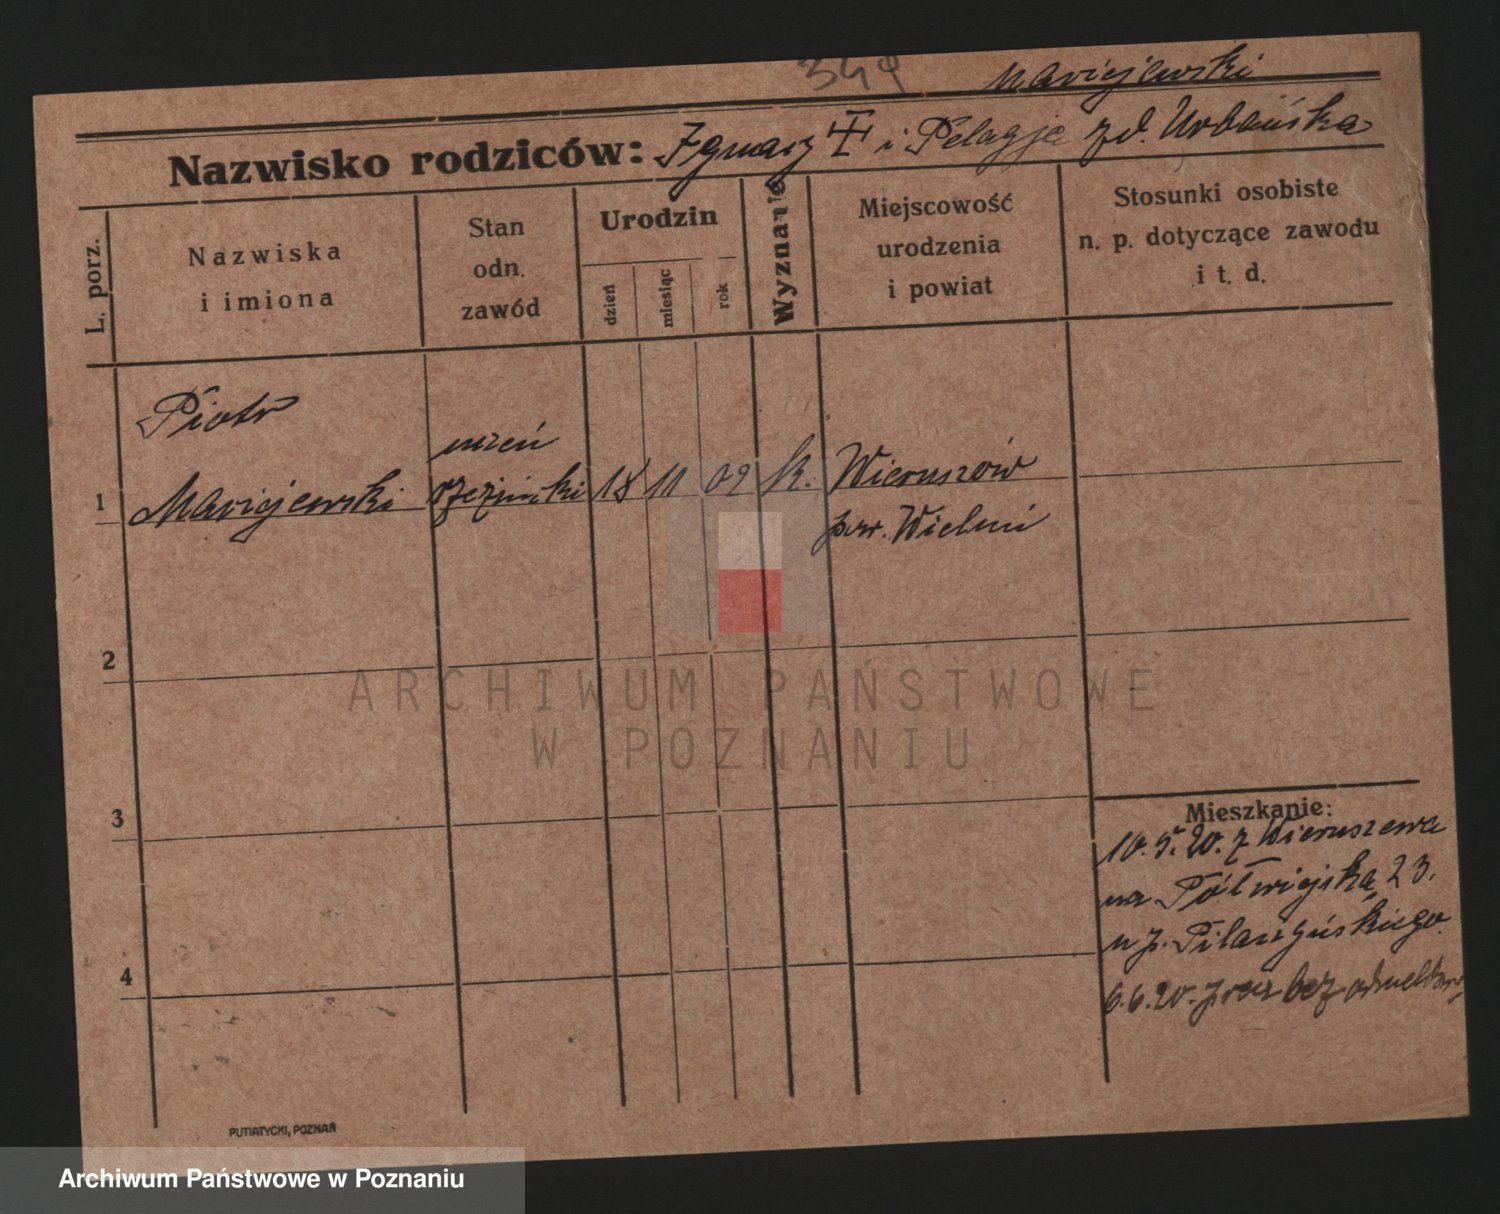 349
Maciejewski
Nazwisko rodziców: Ignacy † i Pelagja zd. Urbańska
L. porz.
Nazwiska
i imiona
Stan
odn.
zawód
Urodzin
dzień
miesiąc
rok
Wyznanie
Miejscowość
urodzenia
i powiat
Stosunki osobiste
n. p. dotyczące zawodu
i t. d.
Piotr
uczeń
1 Maciejewski rzeźnicki 18 11 02 k. Wieruszów
pow. Wieluń
2
3
4
Mieszkanie:
10.5.20. z Wieruszewa
na Półwiejską 23.
u p. Pilarzyńskiego.
6.6.20. precz bez odmeldow.
PUTIATYCKI, POZNAŃ
ARCHIWUM PAŃSTWOWE
W POZNANIU
Archiwum Państwowe w Poznaniu